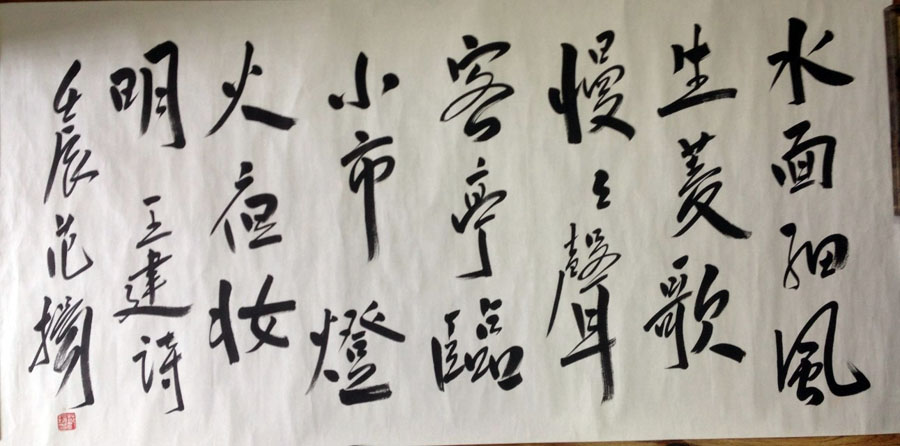 水面細風
生菱歌
慢々聲
客亭臨
小市燈
火夜妆
明 王建詩
壬辰范